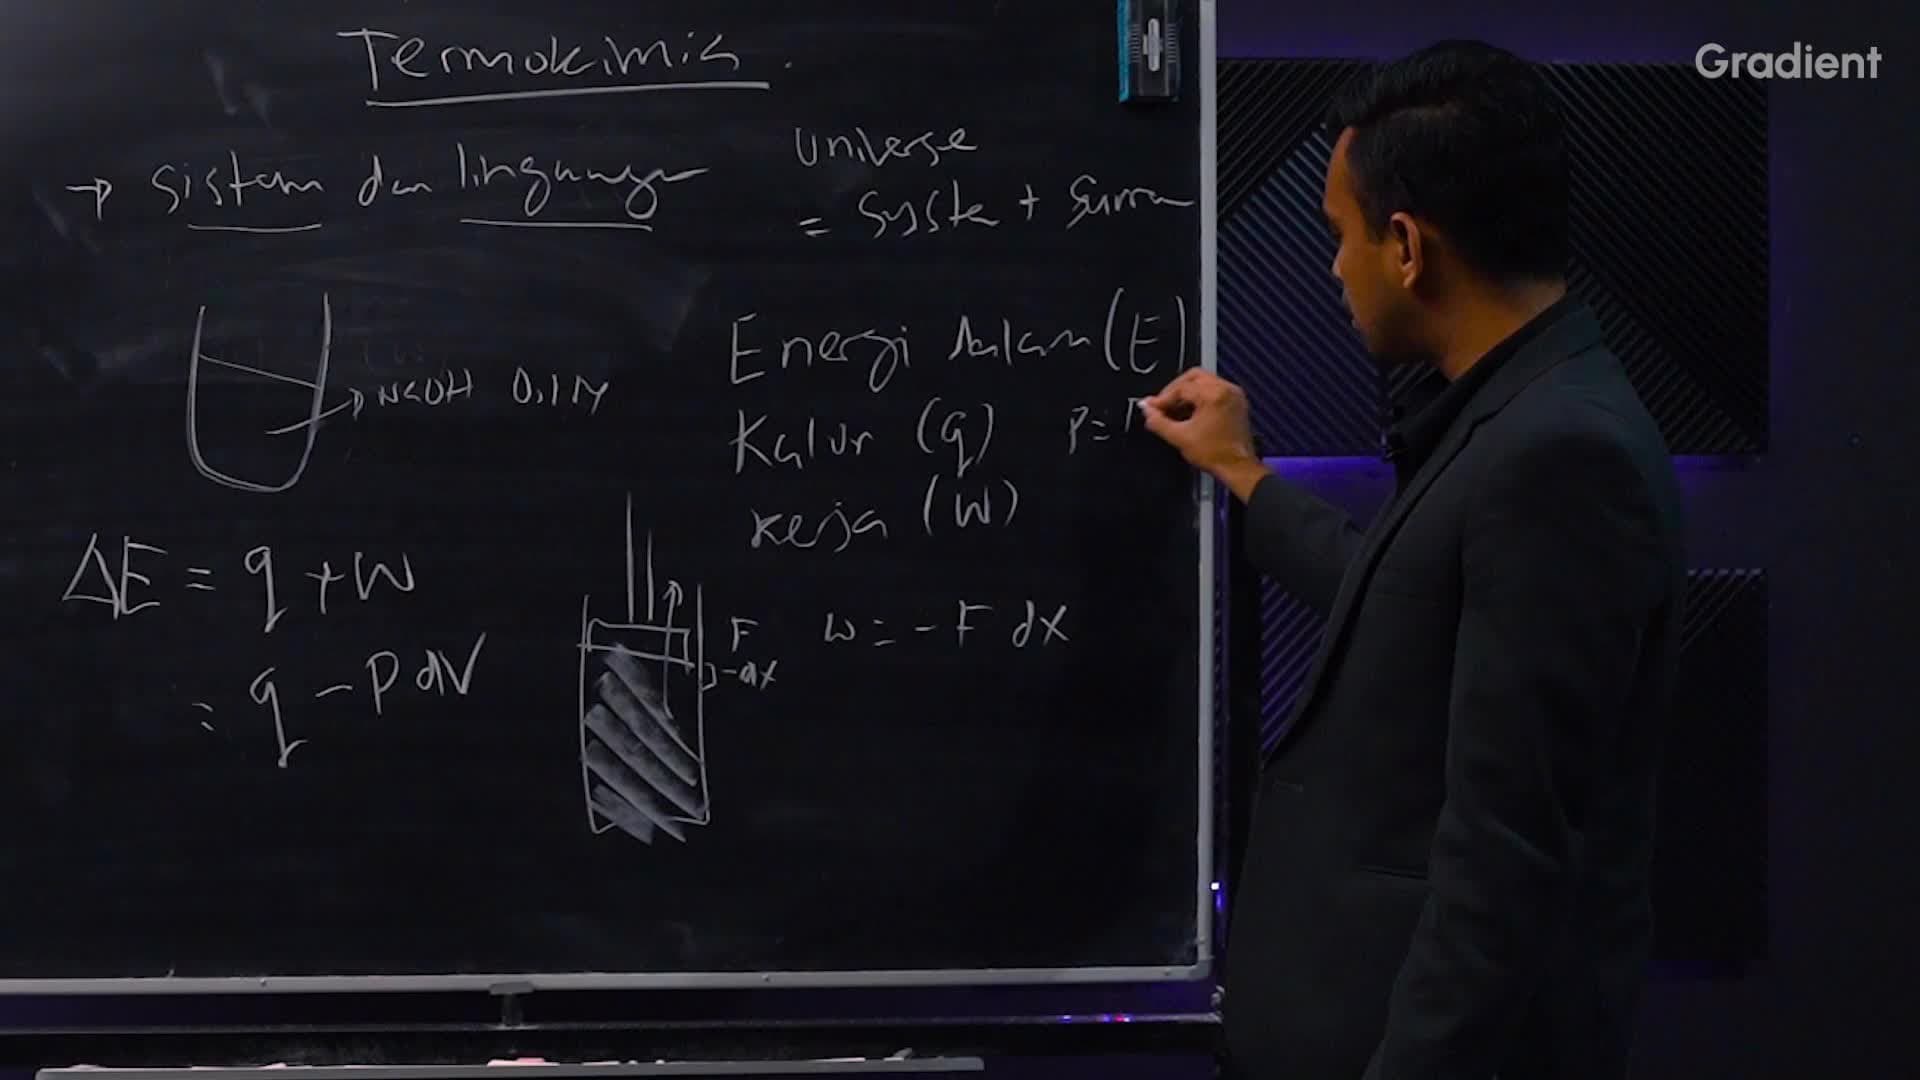 Gradient
Termokimia.
→ sistem dan lingkungan
Universe
= Syste +
NaOH 0,1 M
Energi dalam (E)
Kalor (q)
P =
Kerja (W)
ΔE = q + W
= q - P dV
F
-dx
W = - F dx